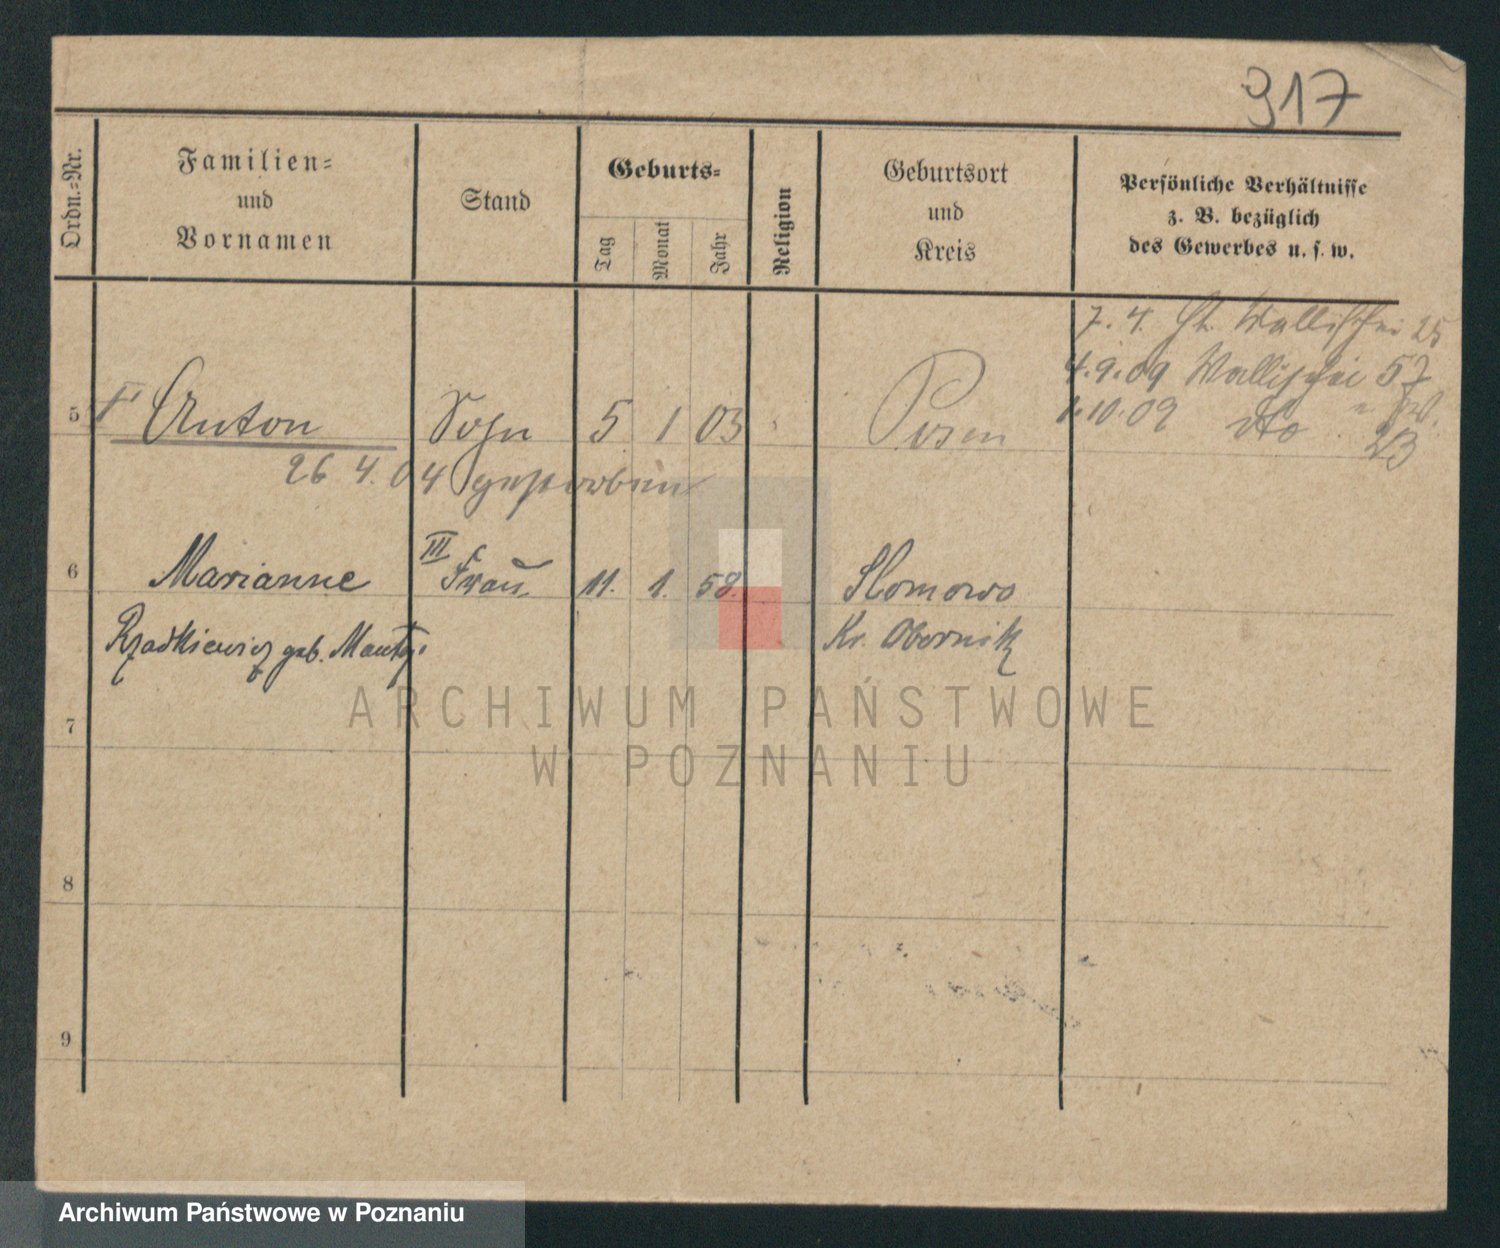 917
Ordn.-Nr.
Familien-
und
Vornamen
Stand
Geburts-
Tag
Monat
Jahr
Religion
Geburtsort
und
Kreis
Persönliche Verhältnisse
z. B. bezüglich
des Gewerbes u. s. w.
7. 4. Wallischei 25
4.9.09 Wallischei 57
1.10.09 dto
23
5 Anton Sohn 5 1 03 Posen
26 4. 04 gestorben
6 Marianne III Frau 11. 1. 58. Slomowo
Rzadkiewicz geb. Kr. Obornik
7
8
9
ARCHIWUM PAŃSTWOWE
W POZNANIU
Archiwum Państwowe w Poznaniu